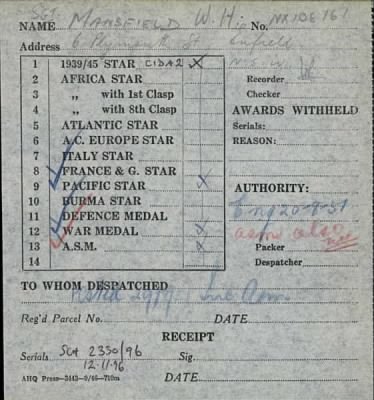 Sgt.
NAME MANSFIELD W. H. No. NX108161
Address 6 Plymouth St Enfield
N.S.W.
1 1939/45 STAR CIDA2 X
2 AFRICA STAR
3 „ with 1st Clasp
4 „ with 8th Clasp
5 ATLANTIC STAR
6 A.C. EUROPE STAR
7 ITALY STAR
8 FRANCE & G. STAR
9 PACIFIC STAR X
10 BURMA STAR
11 DEFENCE MEDAL
12 WAR MEDAL X
13 A.S.M. X
14
Recorder
Checker
AWARDS WITHHELD
Serials:
REASON:
AUTHORITY:
Enq 20-9-51
asm also
Packer
Despatcher
TO WHOM DESPATCHED
Reg'd Parcel No. DATE
RECEIPT
Serials SGA 2350/96 Sig.
12-11-96
AHQ Press—3443—9/46—710m DATE